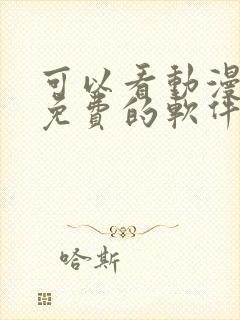 可以看動漫
免費的軟件
哈斯